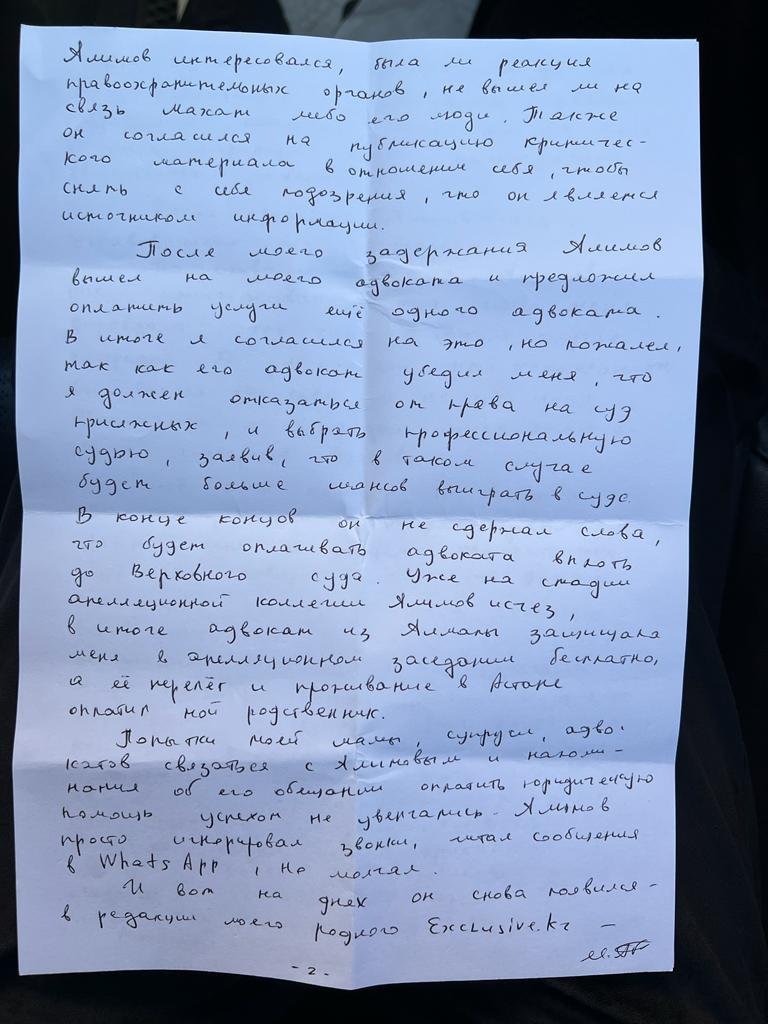 Алимов интересовался, была ли реакция
правоохранительных органов, не вышел ли на
связь Махат либо его люди. Также
он согласился на публикацию критичес-
кого материала в отношении себя, чтобы
снять с себя подозрения, что он является
источником информации.
После моего задержания Алимов
вышел на моего адвоката и предложил
оплатить услуги ещё одного адвоката.
В итоге я согласился на это, но пожалел,
так как его адвокат убедил меня, что
я должен отказаться от права на суд
присяжных, и выбрать профессиональную
судью, заявив, что в таком случае
будет больше шансов выиграть в суде.
В конце концов он не сдержал слова,
что будет оплачивать адвоката вплоть
до Верховного суда. Уже на стадии
апелляционной коллегии Алимов исчез,
в итоге адвокат из Алматы защищала
меня в апелляционном заседании бесплатно,
а её перелёт и проживание в Астане
оплатил мой родственник.
Попытки моей мамы, супруги, адво-
катов связаться с Алимовым и напоми-
нания об его обещании оплатить юридическую
помощь успехом не увенчались. Алимов
просто игнорировал звонки, читал сообщения
в WhatsApp, но молчал.
И вот на днях он снова появился -
в редакции моего родного Exclusive.kz -
- 2 -